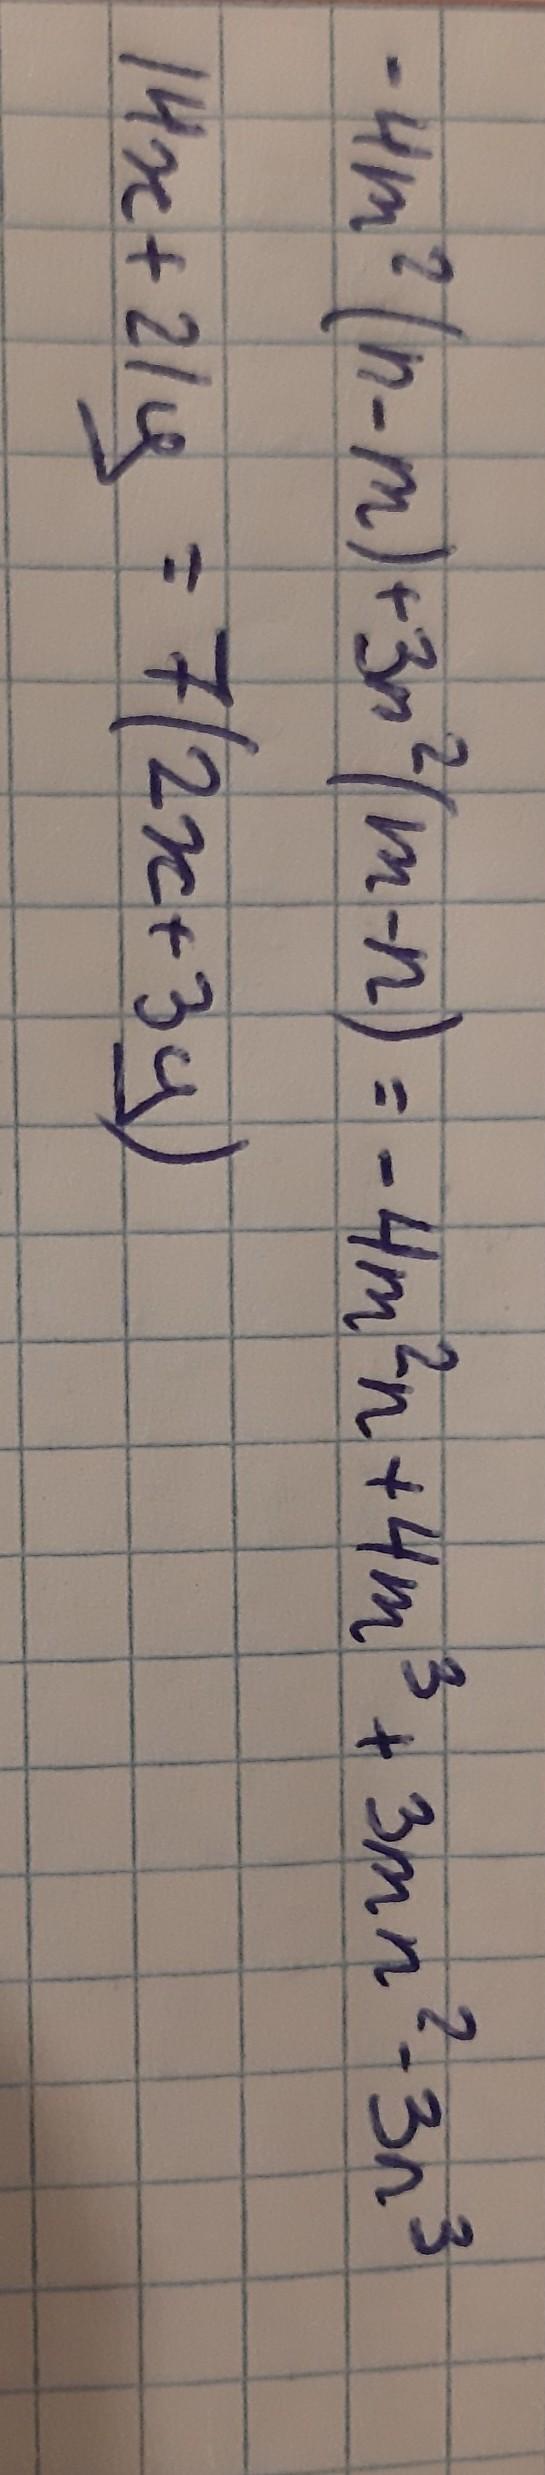 -4m²(n-m)+3n²(m-n) = -4m²n+4m³+3mn²-3n³
14x+21y = 7(2x+3y)